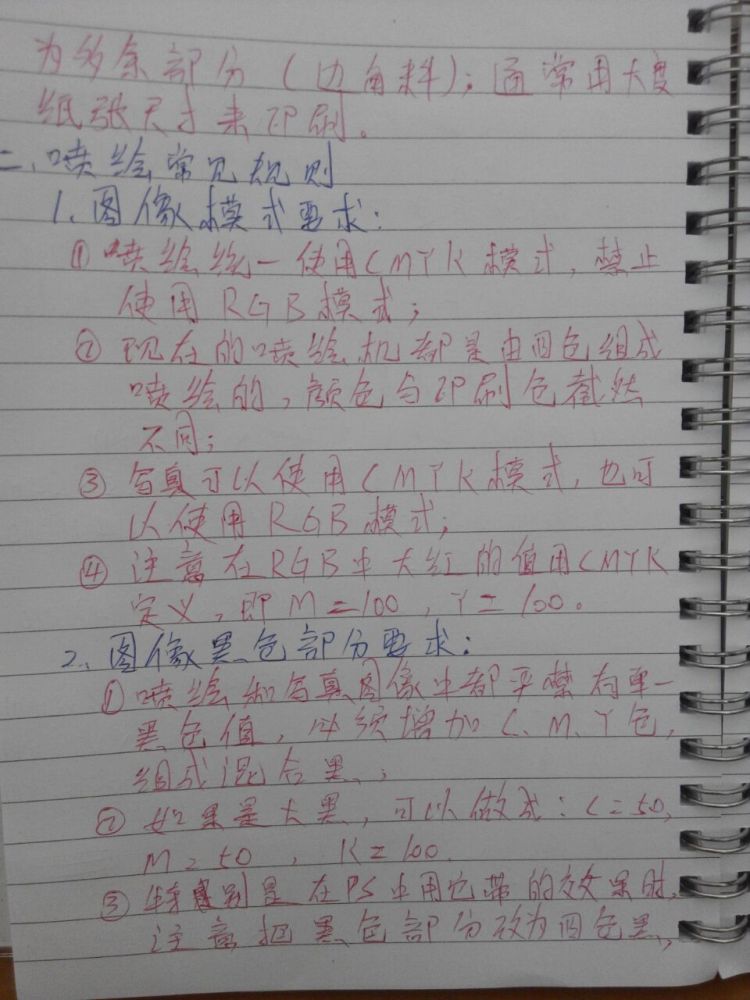 为多余部分（边角料）；通常用大度
纸张尺寸来印刷。
二、喷绘常见规则
1、图像模式要求：
① 喷绘统一使用CMYK模式，禁止
使用RGB模式；
② 现在的喷绘机都是由四色组成
喷绘的，颜色与印刷色截然
不同；
③ 写真可以使用CMYK模式，也可
以使用RGB模式；
④ 注意在RGB中大红的值用CMYK
定义，即M=100，Y=100。
2、图像黑色部分要求：
① 喷绘和写真图像中都严禁有单一
黑色值，必须增加C、M、Y色，
组成混合黑；
② 如果是大黑，可以做成：C=50，
M=50，K=100.
③ 特别是在PS中用它带的效果时，
注意把黑色部分改为四色黑，